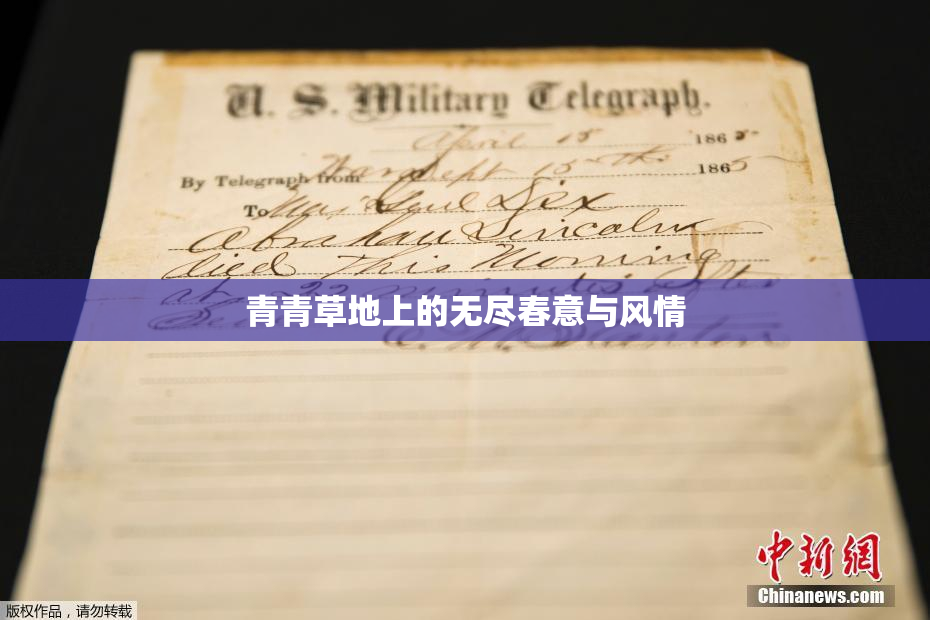 U. S. Military Telegraph.
April 15 1865
By Telegraph from War Dept 15th 1865
To Maj Genl Dix
Abraham Lincoln
died This Morning
at 22 minutes after
青青草地上的无尽春意与风情
E. M. Stanton
中新網
Chinanews.com
版权作品，请勿转载